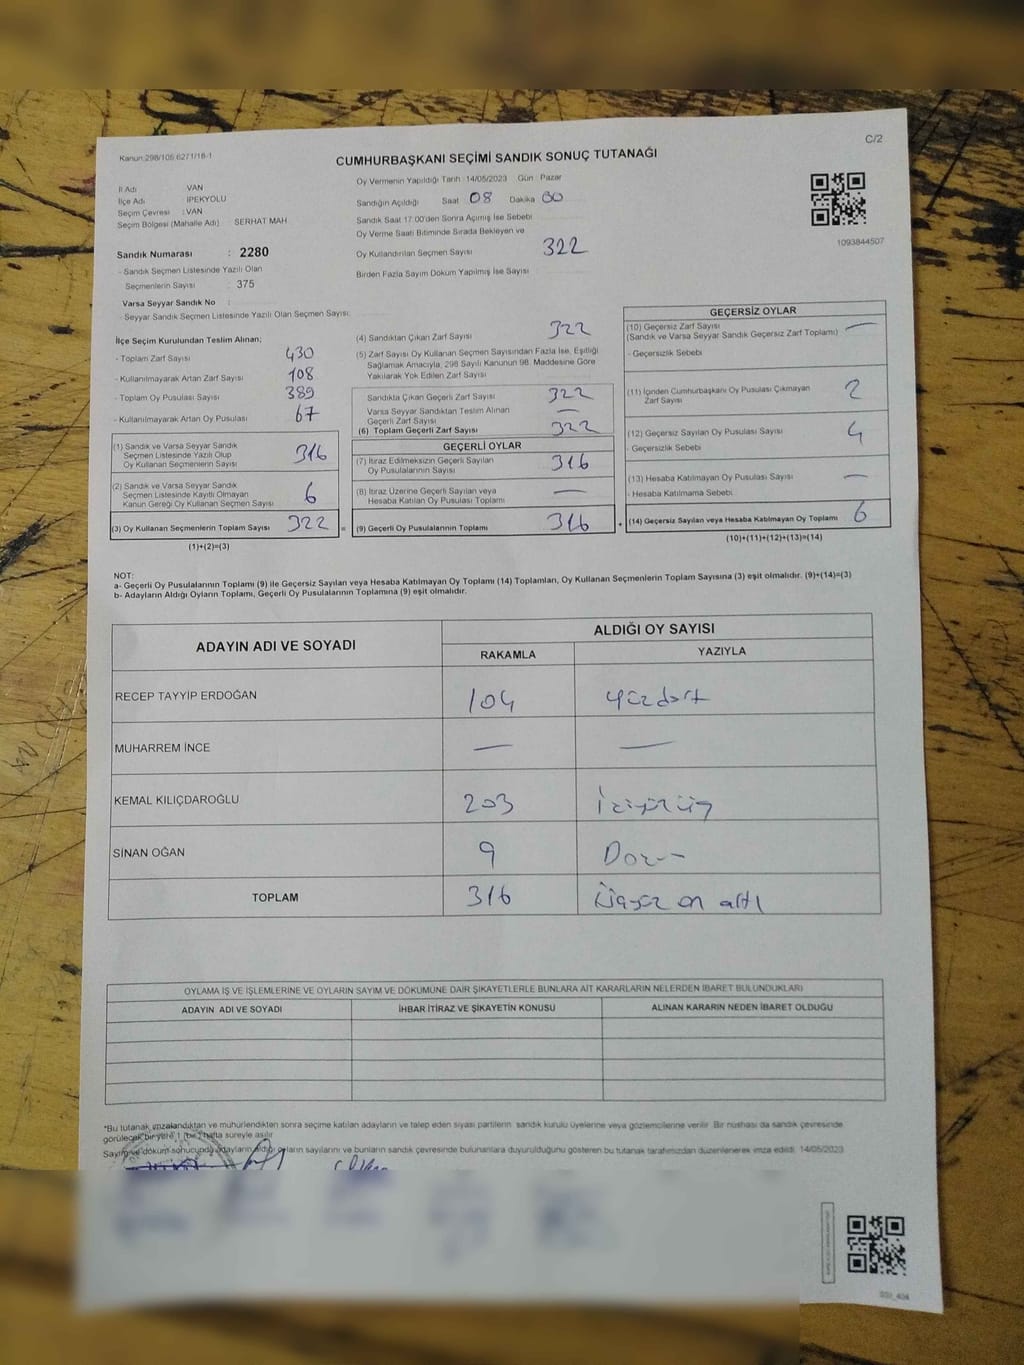 Kanun:298/105 6271/18-1
C/2
CUMHURBAŞKANI SEÇİMİ SANDIK SONUÇ TUTANAĞI
İl Adı VAN
İlçe Adı İPEKYOLU
Seçim Çevresi : VAN
Seçim Bölgesi (Mahalle Adı) SERHAT MAH
Sandık Numarası : 2280
- Sandık Seçmen Listesinde Yazılı Olan
Seçmenlerin Sayısı : 375
Varsa Seyyar Sandık No :
- Seyyar Sandık Seçmen Listesinde Yazılı Olan Seçmen Sayısı:
Oy Vermenin Yapıldığı Tarih :14/05/2023 Gün : Pazar
Sandığın Açıldığı Saat 08 Dakika 00
Sandık Saat 17:00'den Sonra Açılmış İse Sebebi
Oy Verme Saati Bitiminde Sırada Bekleyen ve
Oy Kullandırılan Seçmen Sayısı 322
Birden Fazla Sayım Döküm Yapılmış İse Sayısı
1093844507
İlçe Seçim Kurulundan Teslim Alınan;
- Toplam Zarf Sayısı 430
- Kullanılmayarak Artan Zarf Sayısı 108
- Toplam Oy Pusulası Sayısı 389
- Kullanılmayarak Artan Oy Pusulası 67
(1) Sandık ve Varsa Seyyar Sandık
Seçmen Listesinde Yazılı Olup
Oy Kullanan Seçmenlerin Sayısı 316
(2) Sandık ve Varsa Seyyar Sandık
Seçmen Listesinde Kayıtlı Olmayan
Kanun Gereği Oy Kullanan Seçmen Sayısı 6
(3) Oy Kullanan Seçmenlerin Toplam Sayısı 322 =
(1)+(2)=(3)
(4) Sandıktan Çıkan Zarf Sayısı 322
(5) Zarf Sayısı Oy Kullanan Seçmen Sayısından Fazla İse, Eşitliği
Sağlamak Amacıyla, 298 Sayılı Kanunun 98. Maddesine Göre
Yakılarak Yok Edilen Zarf Sayısı
Sandıkta Çıkan Geçerli Zarf Sayısı 322
Varsa Seyyar Sandıktan Teslim Alınan
Geçerli Zarf Sayısı —
(6) Toplam Geçerli Zarf Sayısı 322
GEÇERLİ OYLAR
(7) İtiraz Edilmeksizin Geçerli Sayılan
Oy Pusulalarının Sayısı 316
(8) İtiraz Üzerine Geçerli Sayılan veya
Hesaba Katılan Oy Pusulası Toplamı —
(9) Geçerli Oy Pusulalarının Toplamı 316 +
GEÇERSİZ OYLAR
(10) Geçersiz Zarf Sayısı —
(Sandık ve Varsa Seyyar Sandık Geçersiz Zarf Toplamı)
- Geçersizlik Sebebi
(11) İçinden Cumhurbaşkanı Oy Pusulası Çıkmayan
Zarf Sayısı 2
(12) Geçersiz Sayılan Oy Pusulası Sayısı 4
- Geçersizlik Sebebi
(13) Hesaba Katılmayan Oy Pusulası Sayısı —
- Hesaba Katılmama Sebebi
(14) Geçersiz Sayılan veya Hesaba Katılmayan Oy Toplamı 6
(10)+(11)+(12)+(13)=(14)
NOT:
a- Geçerli Oy Pusulalarının Toplamı (9) ile Geçersiz Sayılan veya Hesaba Katılmayan Oy Toplamı (14) Toplamları, Oy Kullanan Seçmenlerin Toplam Sayısına (3) eşit olmalıdır. (9)+(14)=(3)
b- Adayların Aldığı Oyların Toplamı, Geçerli Oy Pusulalarının Toplamına (9) eşit olmalıdır.
ADAYIN ADI VE SOYADI
ALDIĞI OY SAYISI
RAKAMLA YAZIYLA
RECEP TAYYİP ERDOĞAN 104 yüzdört
MUHARREM İNCE — —
KEMAL KILIÇDAROĞLU 203 İkiyüzüç
SİNAN OĞAN 9 Dokuz
TOPLAM 316 Üçyüz on altı
OYLAMA İŞ VE İŞLEMLERİNE VE OYLARIN SAYIM VE DÖKÜMÜNE DAİR ŞİKAYETLERLE BUNLARA AİT KARARLARIN NELERDEN İBARET BULUNDUKLARI
ADAYIN ADI VE SOYADI İHBAR İTİRAZ VE ŞİKAYETİN KONUSU ALINAN KARARIN NEDEN İBARET OLDUĞU
*Bu tutanak imzalandıktan ve mühürlendikten sonra seçime katılan adayların ve talep eden siyasi partilerin sandık kurulu üyelerine veya gözlemcilerine verilir. Bir nüshası da sandık çevresinde
görülecek bir yere 1 (bir) hafta süreyle asılır.
Sayım ve döküm sonucunda adayların aldığı oyların sayılarını ve bunların sandık çevresinde bulunanlara duyurulduğunu gösteren bu tutanak tarafımızdan düzenlenerek imza edildi. 14/05/2023